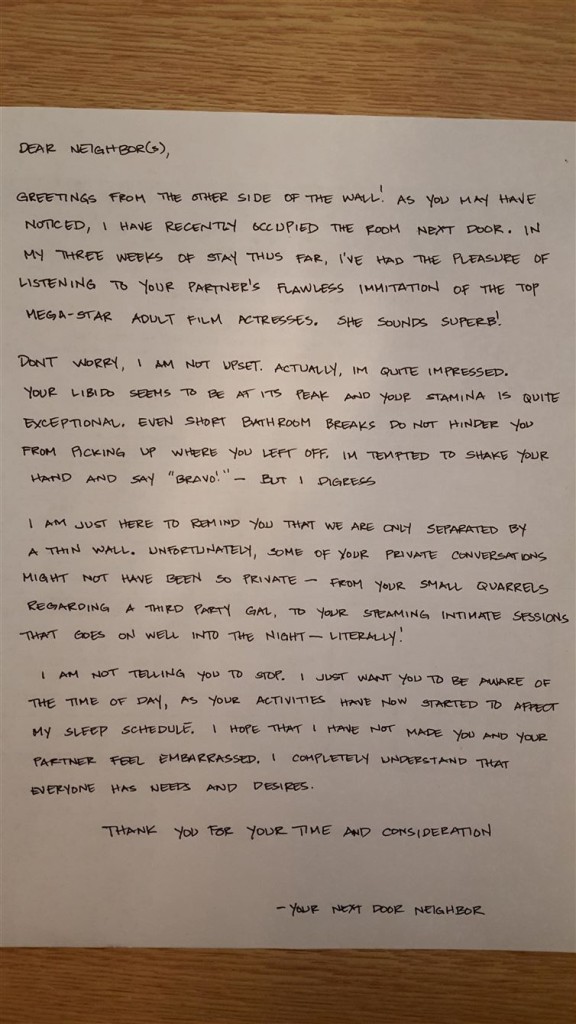 DEAR NEIGHBOR(S),
GREETINGS FROM THE OTHER SIDE OF THE WALL! AS YOU MAY HAVE
NOTICED, I HAVE RECENTLY OCCUPIED THE ROOM NEXT DOOR. IN
MY THREE WEEKS OF STAY THUS FAR, I'VE HAD THE PLEASURE OF
LISTENING TO YOUR PARTNER'S FLAWLESS IMMITATION OF THE TOP
MEGA-STAR ADULT FILM ACTRESSES. SHE SOUNDS SUPERB!
DONT WORRY, I AM NOT UPSET. ACTUALLY, IM QUITE IMPRESSED.
YOUR LIBIDO SEEMS TO BE AT ITS PEAK AND YOUR STAMINA IS QUITE
EXCEPTIONAL. EVEN SHORT BATHROOM BREAKS DO NOT HINDER YOU
FROM PICKING UP WHERE YOU LEFT OFF. IM TEMPTED TO SHAKE YOUR
HAND AND SAY "BRAVO!" — BUT I DIGRESS
I AM JUST HERE TO REMIND YOU THAT WE ARE ONLY SEPARATED BY
A THIN WALL. UNFORTUNATELY, SOME OF YOUR PRIVATE CONVERSATIONS
MIGHT NOT HAVE BEEN SO PRIVATE — FROM YOUR SMALL QUARRELS
REGARDING A THIRD PARTY GAL, TO YOUR STEAMING INTIMATE SESSIONS
THAT GOES ON WELL INTO THE NIGHT — LITERALLY!
I AM NOT TELLING YOU TO STOP. I JUST WANT YOU TO BE AWARE OF
THE TIME OF DAY, AS YOUR ACTIVITIES HAVE NOW STARTED TO AFFECT
MY SLEEP SCHEDULE. I HOPE THAT I HAVE NOT MADE YOU AND YOUR
PARTNER FEEL EMBARRASSED. I COMPLETELY UNDERSTAND THAT
EVERYONE HAS NEEDS AND DESIRES.
THANK YOU FOR YOUR TIME AND CONSIDERATION
— YOUR NEXT DOOR NEIGHBOR